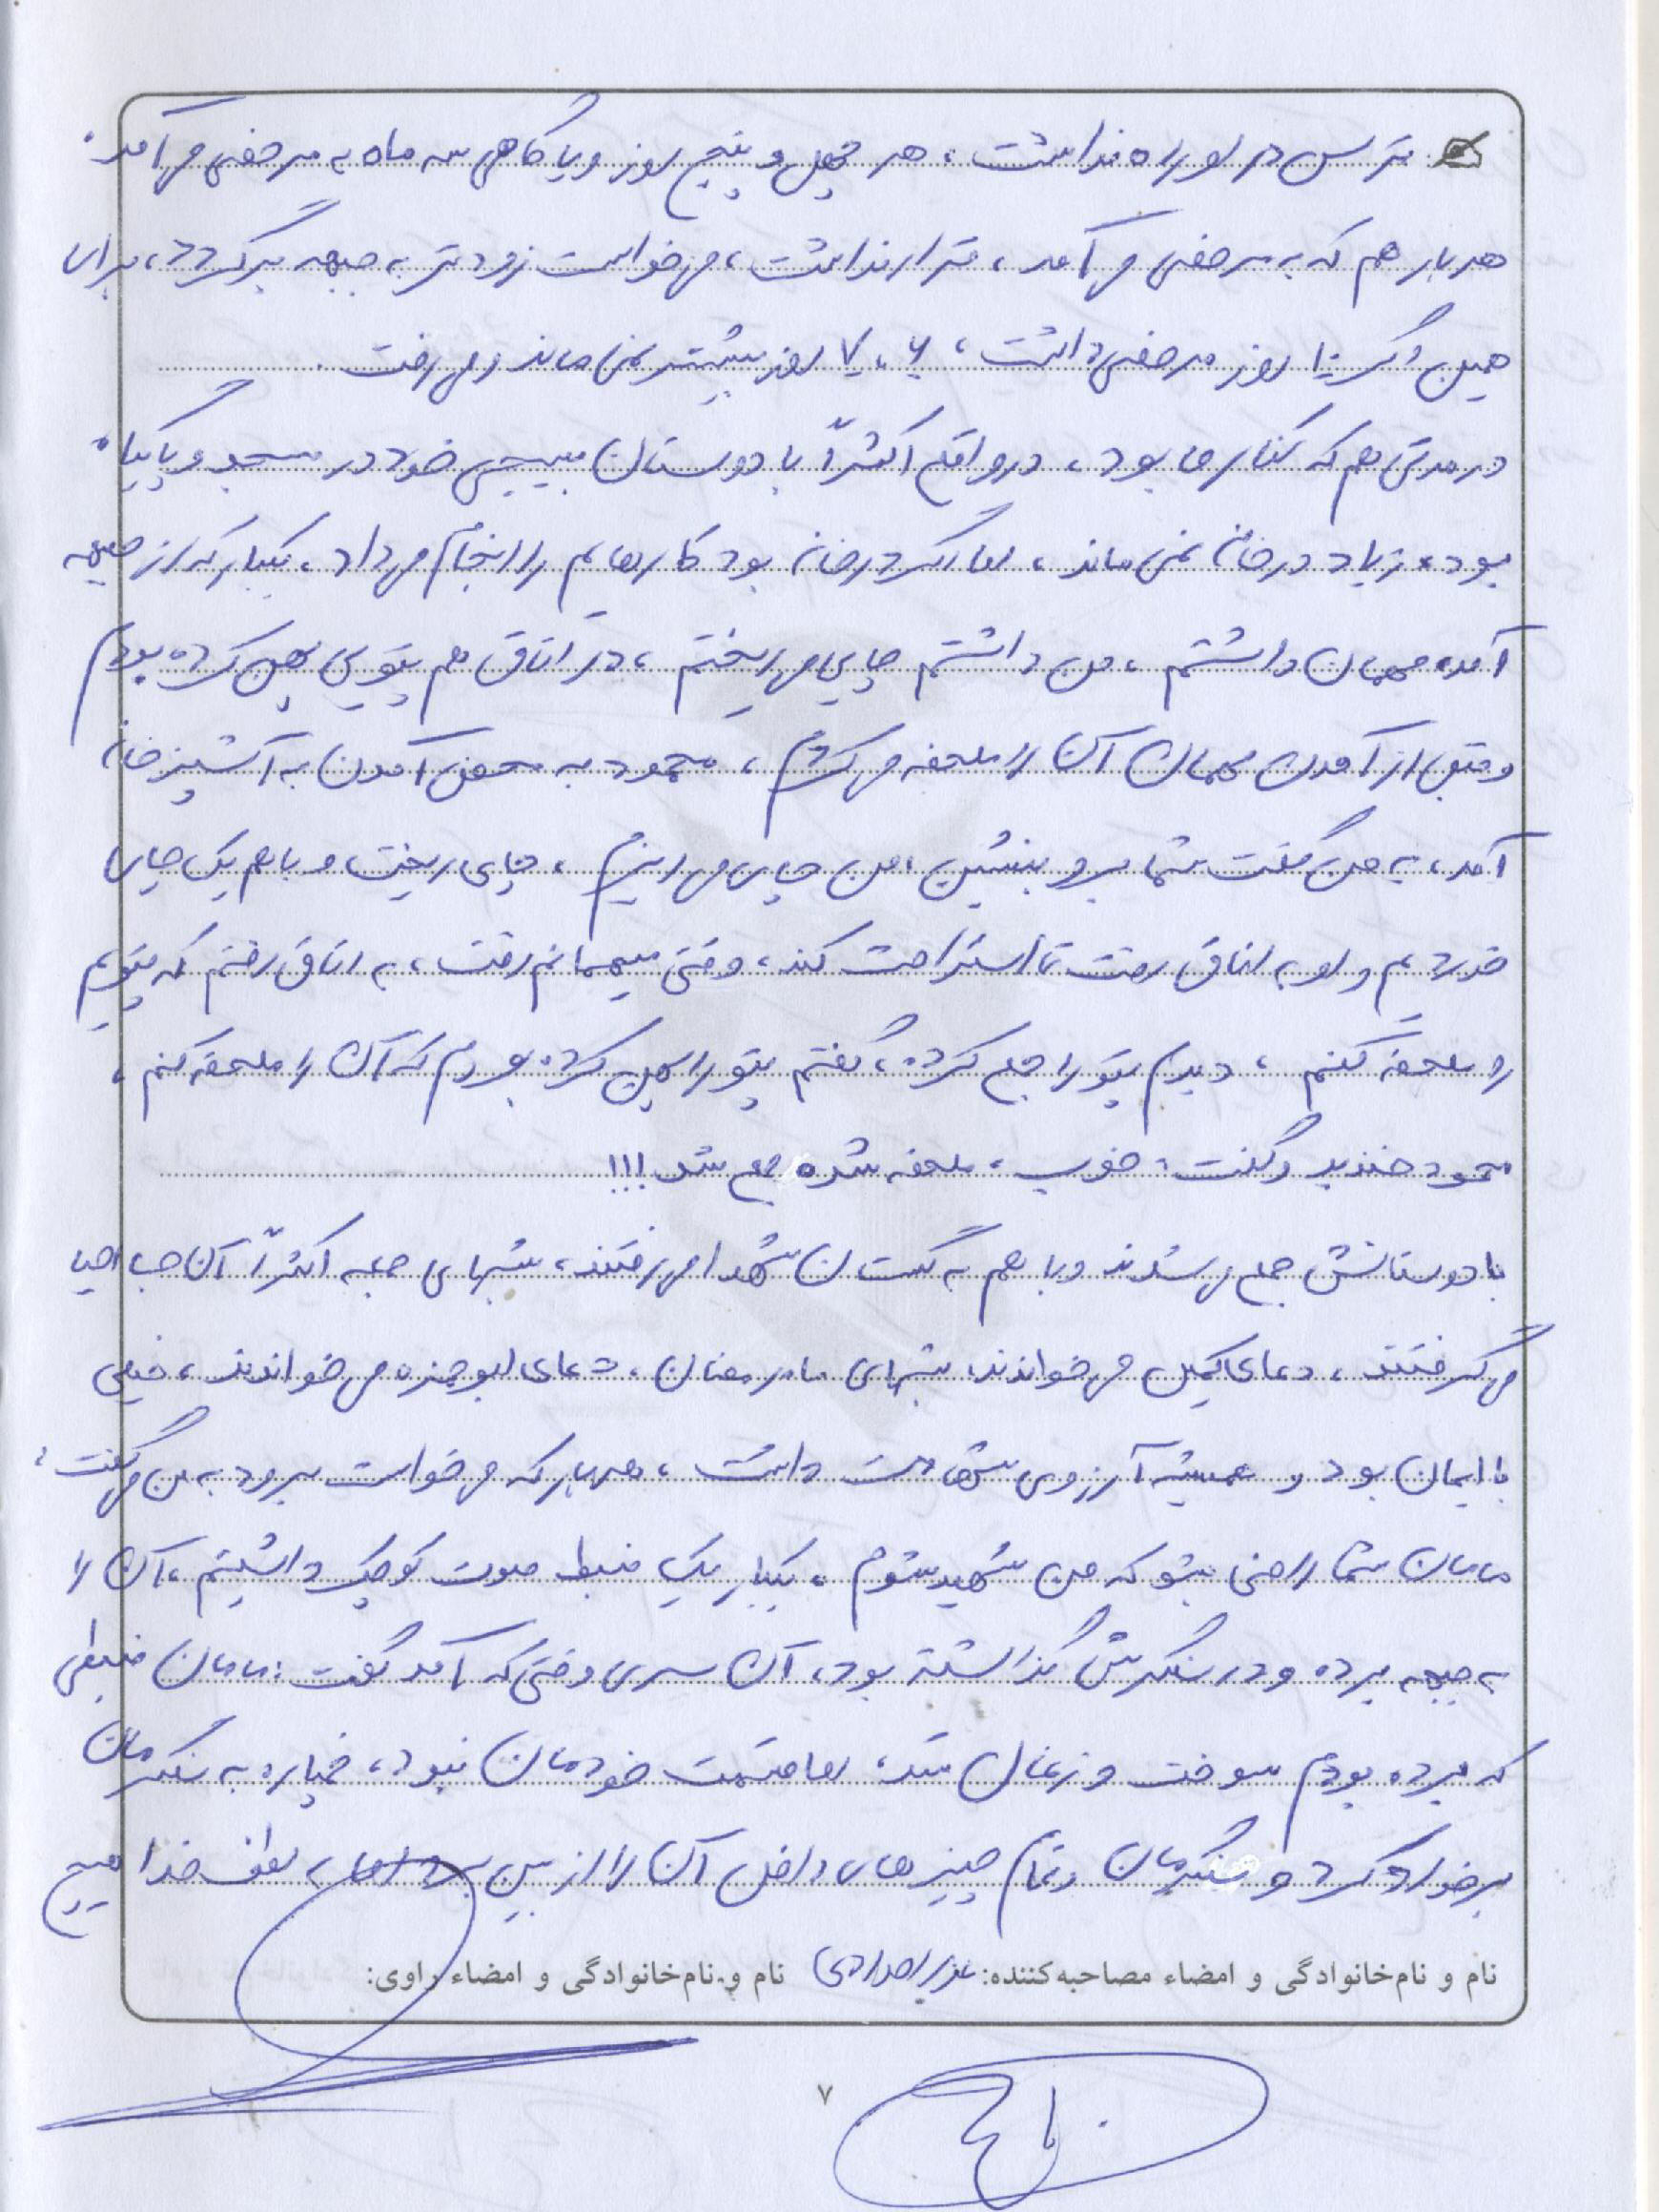 ترس در او راه نداشت، هر چهل و پنج روز و یا گاهی سه ماه به مرخصی می آمد.
هر بار هم که به مرخصی می آمد، قرار نداشت، می خواست زودتر به جبهه برگردد، برای
همین اگر ۱۰ روز مرخصی داشت، ۶، ۷ روز بیشتر نمی ماند و می رفت.
در مدتی هم که کنار ما بود، در واقع اکثراً با دوستان بسیجی خود در مسجد و پایگاه
بود، زیاد در خانه نمی ماند، اما اگر در خانه بود کارهایم را انجام می داد، یکبار که از جبهه
آمد، مهمان داشتم، من داشتم چای می ریختم، در اتاق هم پتویی پهن کرده بودم
و قبل از آمدن مهمان آن را ملحفه می کردم، محمود به محض آمدن به آشپزخانه
آمد، به من گفت شما برو بنشین، من چای می ریزم، چای ریخت و با هم یک چای
خوردیم و او به اتاق رفت تا استراحت کند، وقتی میهمانم رفت، به اتاق رفتم که پتویم
را ملحفه کنم، دیدم پتو را جمع کرده، گفتم پتو را پهن کرده بودم که آن را ملحفه کنم،
محمود خندید و گفت: خوب، ملحفه شده جمع شد!!!
با دوستانش جمع می شدند و با هم به گلستان شهدا می رفتند، شبهای جمعه اکثراً آن جا احیا
می گرفتند، دعای کمیل می خواندند، شبهای ماه رمضان، دعای ابوحمزه می خواندند، خیلی
با ایمان بود و همیشه آرزوی شهادت داشت، هر بار که می خواست برود به من می گفت:
مامان شما راضی بشو که من شهید شوم، یکبار یک ضبط صوت کوچک داشتیم، آن را
به جبهه برده و در سنگرش گذاشته بود، آن سری وقتی که آمد گفت: مامان ضبطی
که برده بودم سوخت و زغال شد، اما قسمت خودمان نبود، خمپاره به سنگرمان
برخورد کرد و سنگرمان و تمام چیزهای داخل آن را از بین برد اما به لطف خدا هیچ
نام و نام‌خانوادگی و امضاء مصاحبه‌کننده: نام و نام‌خانوادگی و امضاء راوی:
۷